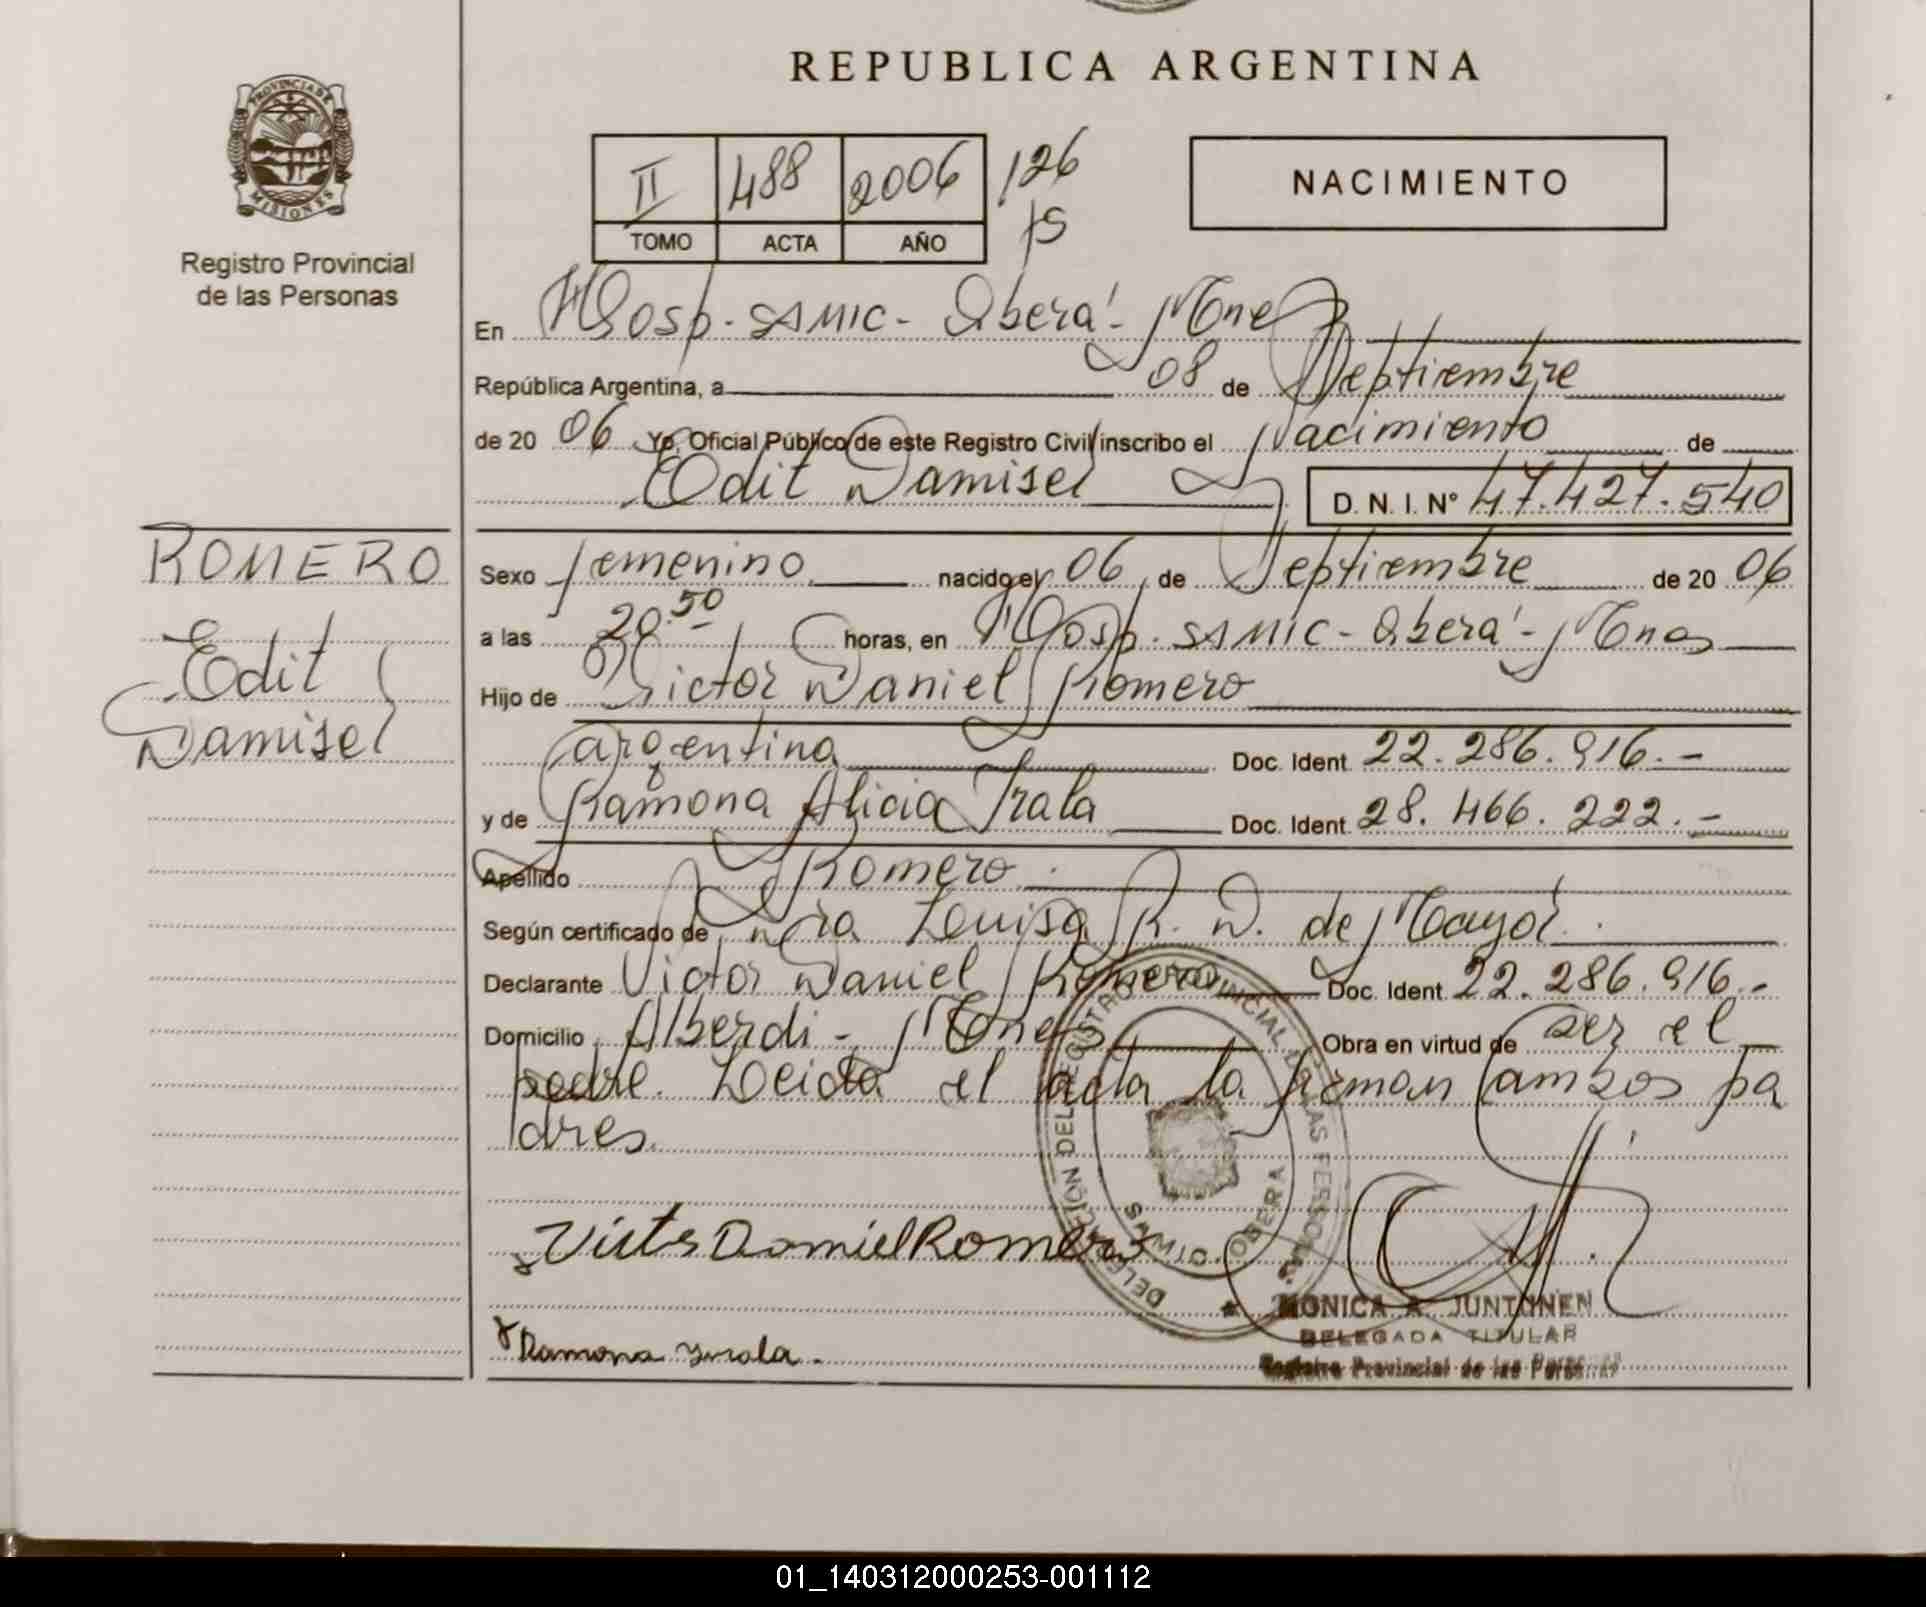 REPUBLICA ARGENTINA
PROVINCIA DE
MISIONES
Registro Provincial
de las Personas
II 488 2006 126
TOMO ACTA AÑO
15
NACIMIENTO
En Hosp. SAMIC - Oberá - Mnes
República Argentina, a 08 de Septiembre
de 20 06 Yo, Oficial Público de este Registro Civil inscribo el Nacimiento de
Edit Damisel D. N. I. Nº 47.427.540
ROMERO
Edit
Damisel
Sexo femenino nacido el 06 de Septiembre de 20 06
a las 20.50 horas, en Hosp. SAMIC - Oberá - Mnes
Hijo de Victor Daniel Romero
argentina Doc. Ident. 22.286.916.-
y de Ramona Alicia Irala Doc. Ident. 28.466.222.-
Apellido Romero.
Según certificado de Dra Luisa R. D. de Mayol.
Declarante Victor Daniel Romero Doc. Ident. 22.286.916.-
Domicilio Alberdi - Mnes Obra en virtud de ser el
padre. Leida el acta la firman ambos pa
dres.
Victor Daniel Romero
Ramona Irala.
OBERA
MONICA A. JUNTUNEN
DELEGADA TITULAR
Registro Provincial de las Personas
01_140312000253-001112